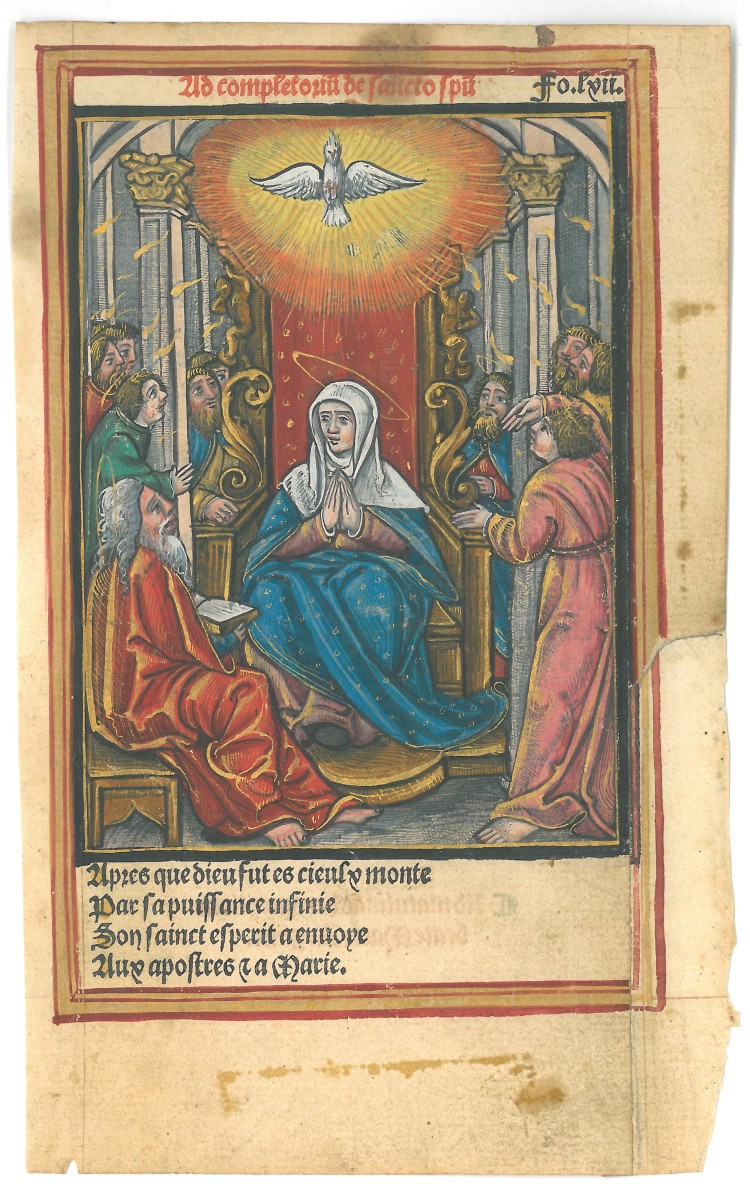 Ad completoriū de sancto spū Fo.lxii.
Apres que dieu fut es cieulx monte
Par sa puissance infinie
Son sainct esperit a enuoye
Aux apostres ⁊ a Marie.